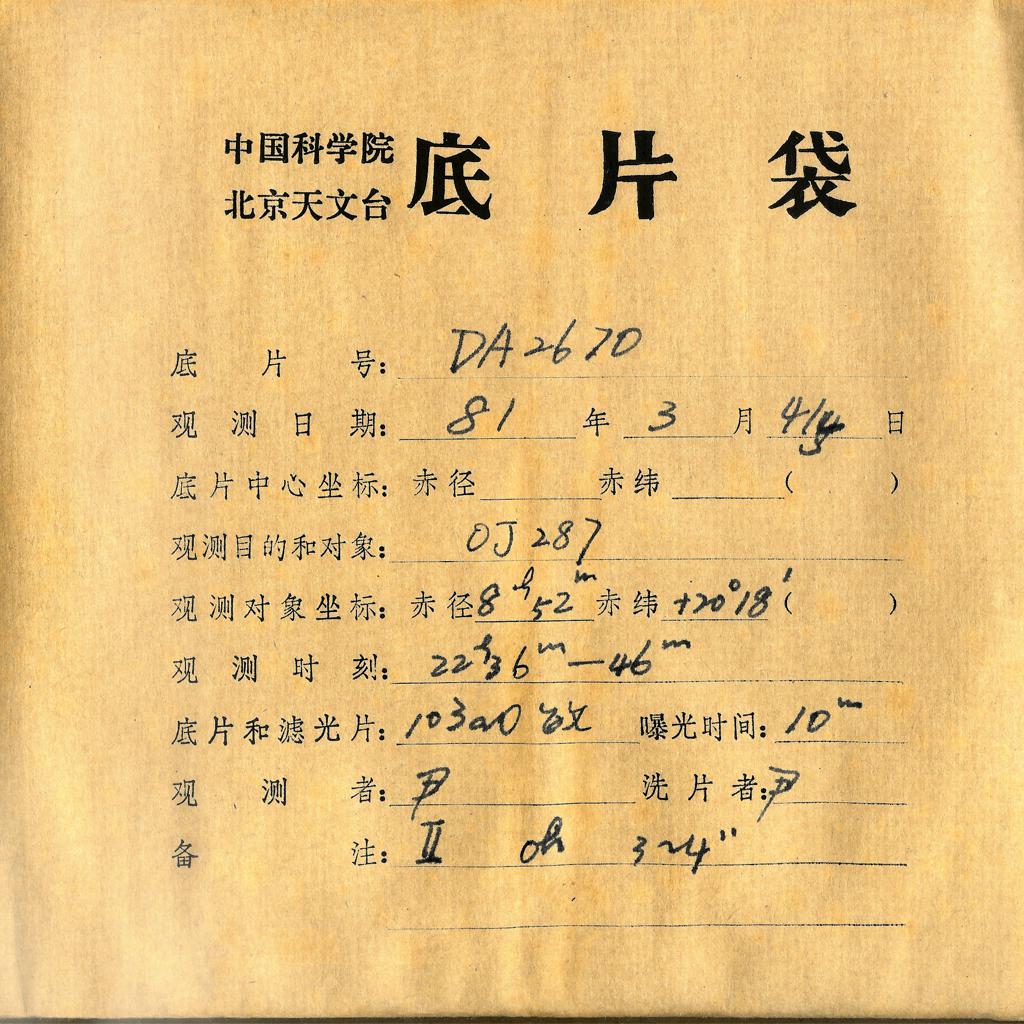 中国科学院
北京天文台
底片袋
底片号: DA2670
观测日期: 81 年 3 月 4/5 日
底片中心坐标: 赤径 赤纬 ( )
观测目的和对象: OJ 287
观测对象坐标: 赤径 8h52m 赤纬 +20°18′ ( )
观测时刻: 22h36m—46m
底片和滤光片: 103aO 曝光时间: 10m
观测者: 尹 洗片者: 尹
备注: II oh 3~4"